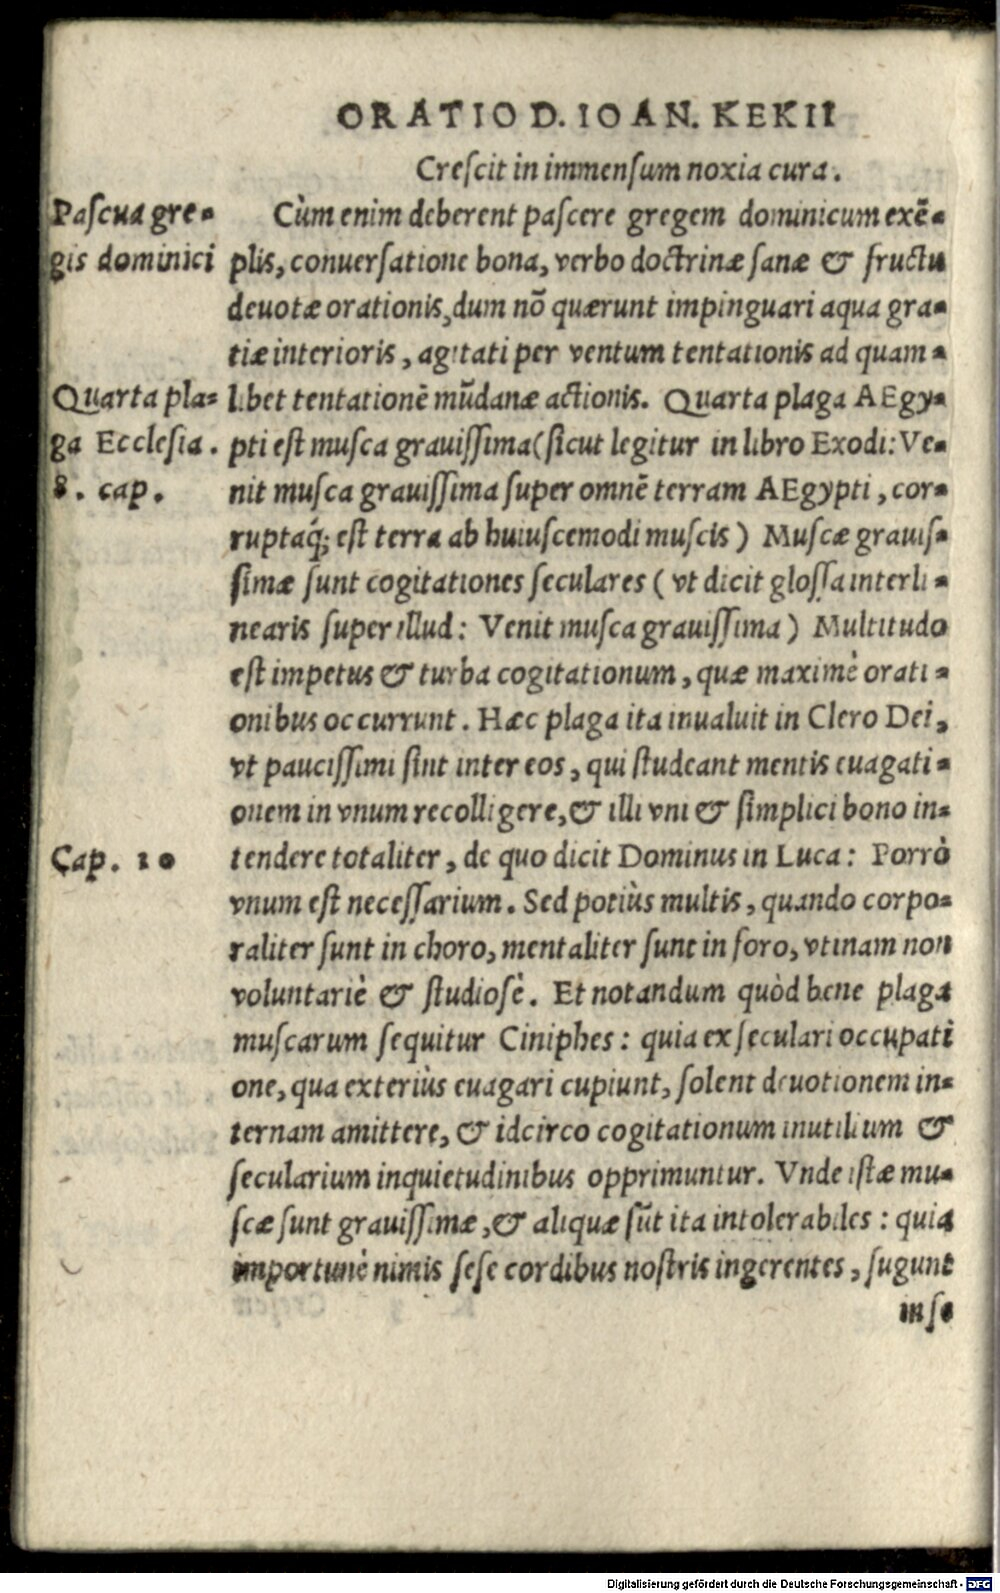 ORATIO D. IOAN. KEKII
Creſcit in immenſum noxia cura.
Paſcua gre-
gis dominici
Cùm enim deberent paſcere gregem dominicum exē-
plis, conuerſatione bona, verbo doctrinæ ſanæ & fructu
deuotæ orationis, dum nō quærunt impinguari aqua gra-
tiæ interioris, agitati per ventum tentationis ad quam-
Quarta pla-
ga Eccleſia.
8. cap.
libet tentationē mūdanæ actionis. Quarta plaga AEgy-
pti eſt muſca grauiſſima (ſicut legitur in libro Exodi: Ve-
nit muſca grauiſſima ſuper omnē terram AEgypti, cor-
ruptaq́; eſt terra ab huiuſcemodi muſcis) Muſcæ grauiſ-
ſimæ ſunt cogitationes ſeculares (vt dicit gloſſa interli-
nearis ſuper illud: Venit muſca grauiſſima) Multitudo
eſt impetus & turba cogitationum, quæ maximè orati-
onibus occurrunt. Hæc plaga ita inualuit in Clero Dei,
vt pauciſſimi ſint inter eos, qui ſtudeant mentis euagati-
onem in vnum recolligere, & illi vni & ſimplici bono in-
Cap. 10
tendere totaliter, de quo dicit Dominus in Luca: Porrò
vnum eſt neceſſarium. Sed potiùs multis, quando corpo-
raliter ſunt in choro, mentaliter ſunt in foro, vtinam non
voluntariè & ſtudioſè. Et notandum quòd bene plaga
muſcarum ſequitur Ciniphes: quia ex ſeculari occupati
one, qua exteriùs euagari cupiunt, ſolent deuotionem in-
ternam amittere, & idcirco cogitationum inutilium &
ſecularium inquietudinibus opprimuntur. Vnde iſtæ mu-
ſcæ ſunt grauiſſimæ, & aliquæ ſūt ita intolerabiles: quia
importunè nimis ſeſe cordibus noſtris ingerentes, ſugunt
in ſe
Digitalisierung gefördert durch die Deutsche Forschungsgemeinschaft - DFG